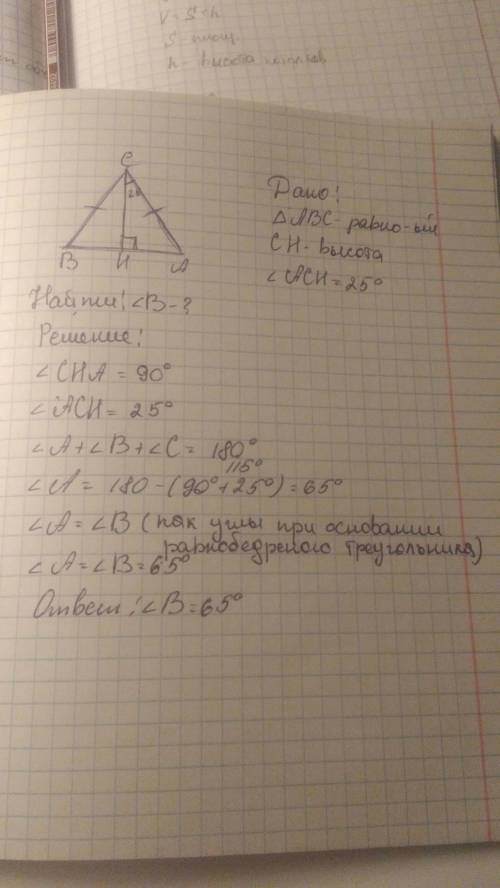 V = S · h
S - площ.
h - высота
C
B
H
A
Дано:
△ABC - равно-ый
CH - высота
∠ACH = 25°
Найти: ∠B - ?
Решение:
∠CHA = 90°
∠ACH = 25°
∠A + ∠B + ∠C = 180°
115°
∠A = 180 - (90° + 25°) = 65°
∠A = ∠B (как углы при основании
равнобедреного треугольника)
∠A = ∠B = 65°
Ответ: ∠B = 65°